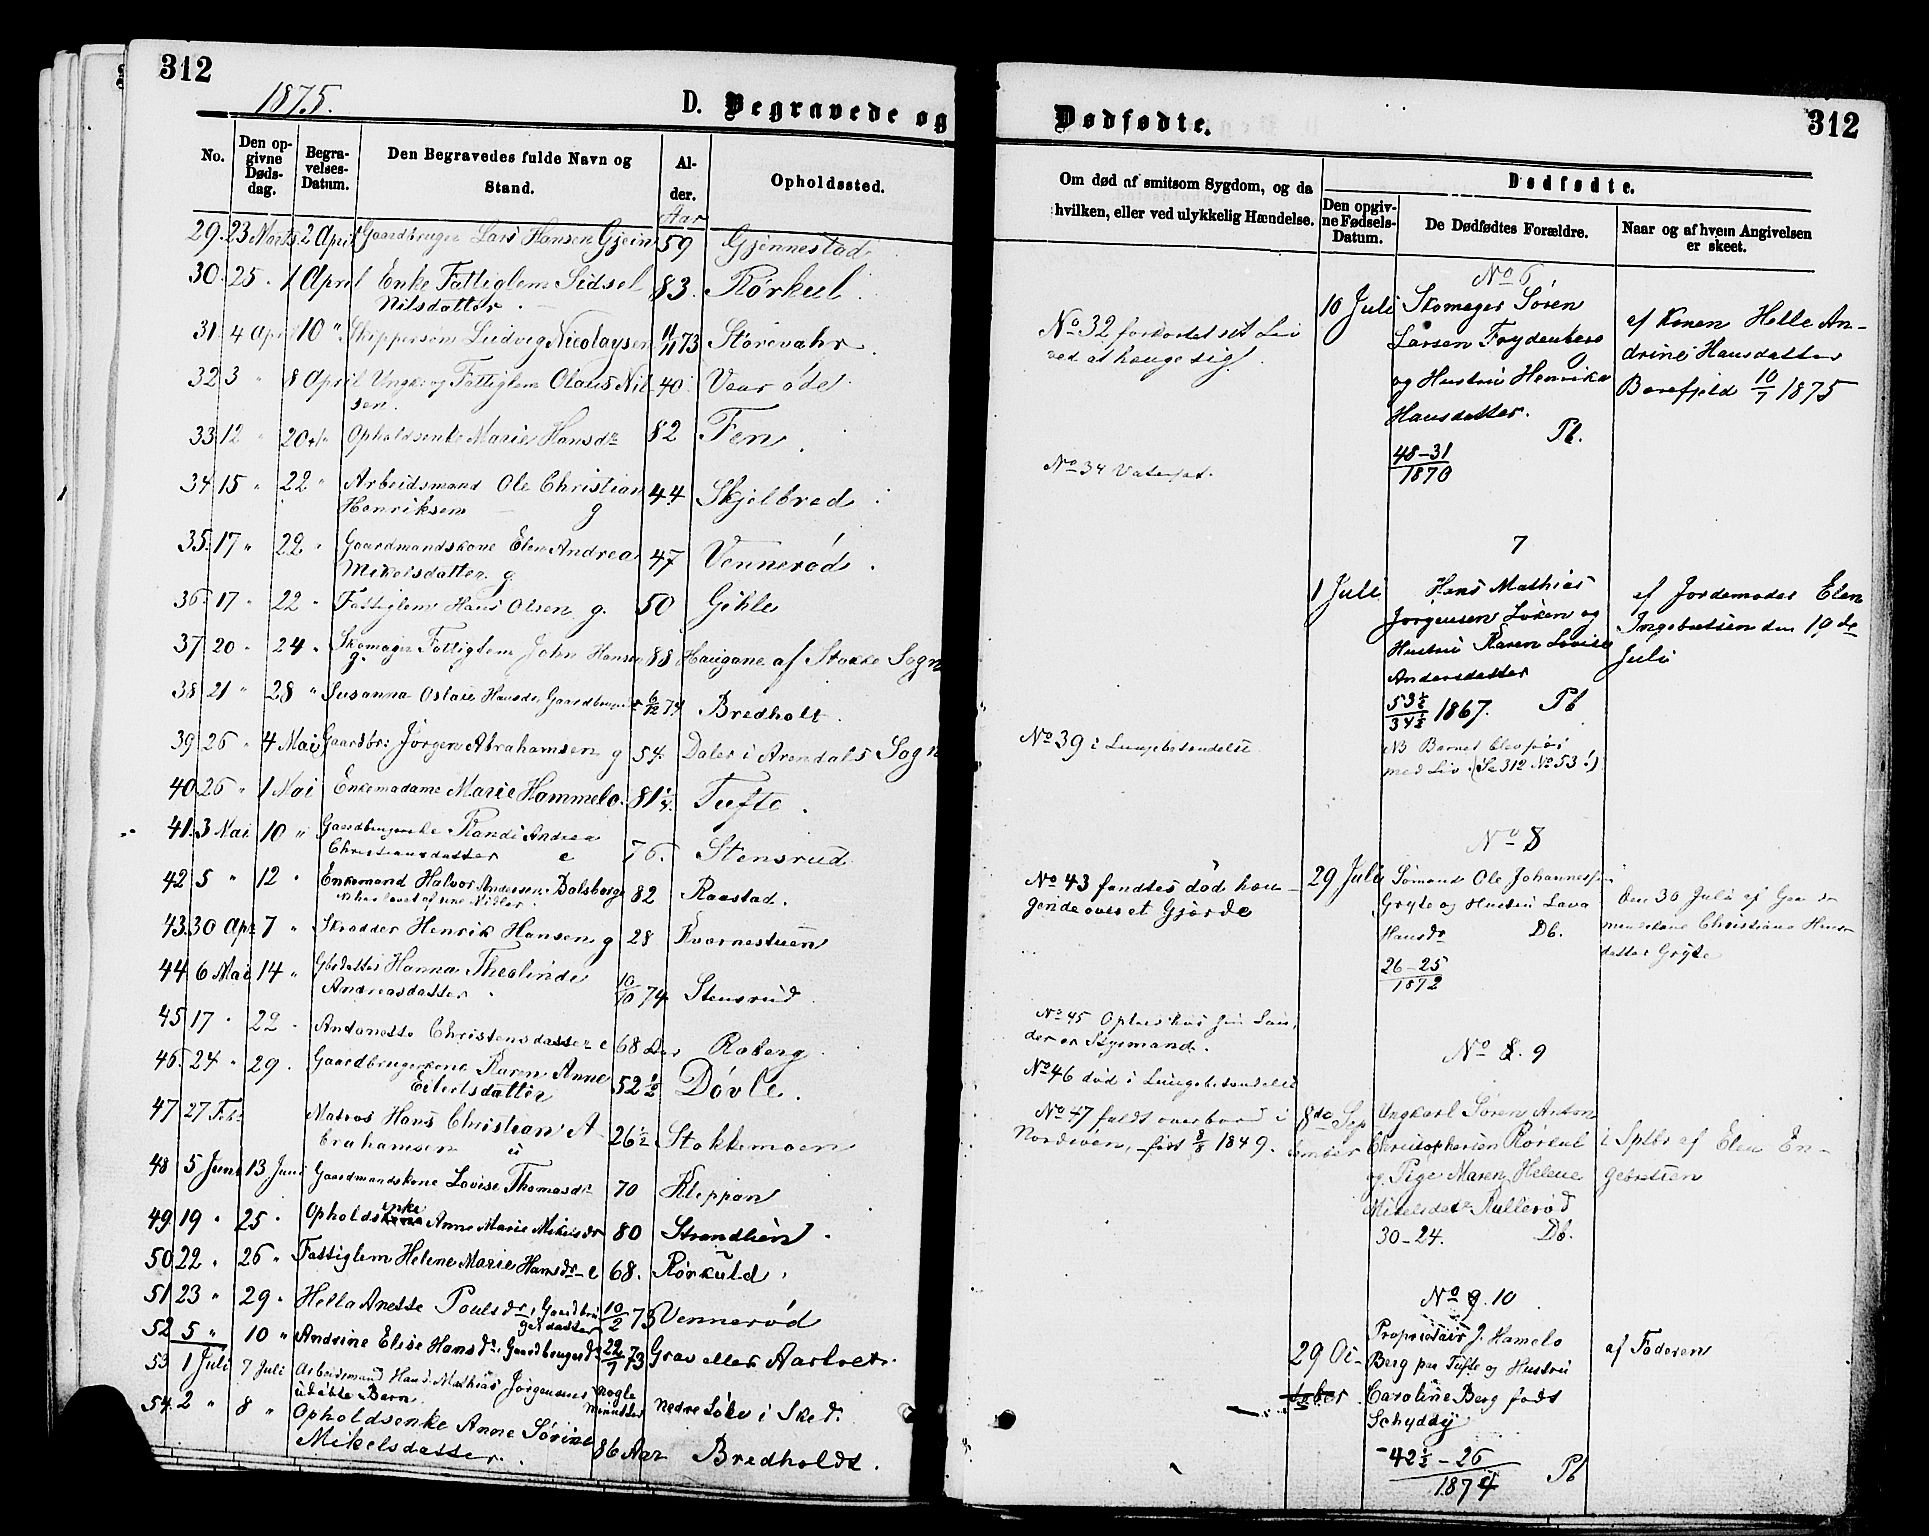 312
1875.
D. Begravede og
No.
Den opgivne Dødsdag.
Begravelses-Datum.
Den Begravedes fulde Navn og Stand.
Alder.
Aar
Opholdssted.
29. 23 Marts 2 April Gaardbruger Lars Hansen Gjein 59 Gjennestad
30. 25 " 1 April Enke Fattiglem Sidsel 83. Rørkul
Nilsdatter
31 4 April 10 " Skippersøn Ludvig Nicolaysen 11/11 73 Storevahr
32 3 " 8 April Ungk: og Fattiglem Olaus Nil- 40 Vear øde
sen.
33 12 " 20 " Opholdsenke Marie Hansdr 82 Fen
34 15 " 22 " Arbeidsmand Ole Christian 44 Skjelbred
Henriksen g
35. 17 " 22 " Gaardmandskone Elen Andrea 47 Vennerød.
Mikelsdatter. g.
36. 17 " 22 " Fattiglem Hans Olsen g. 50 Gihle
37 20 " 24 " Skomager Fattiglem John Hansen 88 Haugane af Stokke Sogn
g.
38 21 " 28 " Susanna Oslaie Hansdr Gaardbruger 6/12 74 Bredholt.
39 26 " 4 Mai Gaardbr: Jørgen Abrahamsen g 54. Daler i Arendals Sogn
40. 26 " 1 Mai Enkemadame Marie Hammelo. 81 Tufte
41. 3 Mai 10 " Randi Andrea
Christiansdatter e 76. Stensrud
42 5 " 12 " Enkemand Halvor Andersen Dalsborg 82 Raastad.
43. 30 Apr 7 " Skrædder Henrik Hansen g 28 Kvernestuen
44 6 Mai 14 " Gbrdatter Hanna Thealinde
Andreasdatter 10/10 74 Stensrud
45 17 " 22 " Andanette Christensdatter e 68 Aar Roberg
46. 24 " 29. Gaardbrugerkone Karen Anne 52 1/2 Døvle.
Eilertsdatter
47 27 Febr Matros Hans Christian A- 26 1/2 Stokkemoen
brahamsen u
48 5 Juni 13 Juni Gaardmandskone Lovise Thomasdr 70 Kleppan
49 19 " 25 " Opholdsenke Anne Marie Mikelsdr 80 Strandlien.
50 22 " 26 " Fattiglem Helene Marie Hansdr e 68. Rørkuld
51 23 " 29 " Hella Anette Poulsdr, Gaardbru- 10/2 73 Vennerød
gerdatter
52 5 " 10 " Andrine Elise Hansdr Gaardbrugerdr 22/7 73 Grav eller Aartvet.
53 1 Juli 7 Juli Arbeidsmand Hans Mathias Jørgensens nogle
udøbte Barn Minutter nedre Løke i Sked.
54. 2 " 8 " Opholdsenke Anne Sørine
Mikelsdatter. 86 Aar Bredholdt.
Dødfødte.
312
Om død af smitsom Sygdom, og da hvilken, eller ved ulykkelig Hændelse.
Dødfødte.
Den opgivne Fødsels-Datum.
De Dødfødtes Forældre.
Naar og af hvem Angivelsen er skeet.
No 32 forkortet sit Liv
ved at hænge sig.
No 34 Vatersot.
No 39 i Lungebetændelse
No 43 fandtes død hæn-
gende over et Gjerde
No 45
der er Styrmand.
No 46 død i Lungebetændelse
No 47 faldt overbord i
Nordsøen, født 8/8 1849.
No 6
10 Juli Skomager Søren
Larsen Frydenberg
og Hustru Henrikke
Hansdatter.
Pb.
48-31
1870
af Konen Helle An-
drine Hansdatter
Borefjeld 10/7 1875
7
1 Juli. Hans Mathias
Jørgensen Løken og
Hustru Karen Lovise
Andersdatter
53 1/2
34 1/2 1867. Pb
NB Barnet blev født
med Liv. (Se 312 No 53!)
af Jordemoder Elen
Ingebretsen den 19de
Juli
No 8
29 Juli Sømand Ole Johannessen
Gryte og Hustru Lava
Hansdr Db.
26-25
1872
Den 30 Juli af Gaard-
mandskone Christiane Hans-
datter Gryte
No 9
8de Sep-
tember Ungkarl Søren Anton
Christophersen Rørkul
og Pige Maren Helene
Mikelsdatr Rullerød
30-24. Db.
i Sptbr af Elen En-
gebretsen
No 10
29 Oc-
tober Proprietair J. Hamelo
Berg paa Tufte og Hustru
Caroline Berg født
Schydtz
42 1/2 - 26
1874 Pb
af Faderen